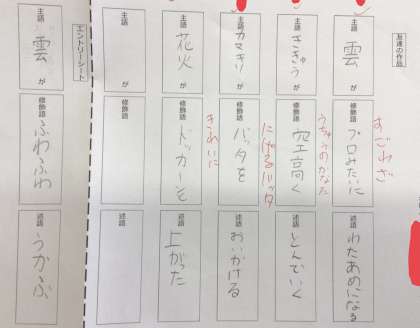 友達の作品
すごわざ
主語
雲
が
修飾語
プロみたいに
述語
わたあめになる
うちゅうのかなた
主語
ききゅう
が
修飾語
空高く
述語
とんでいく
にげるバッタ
主語
カマキリ
が
修飾語
バッタを
述語
おいかける
きれいに
主語
花火
が
修飾語
ドッカーンと
述語
上がった
主語
が
修飾語
述語
エントリーシート
主語
雲
が
修飾語
ふわふわ
述語
うかぶ